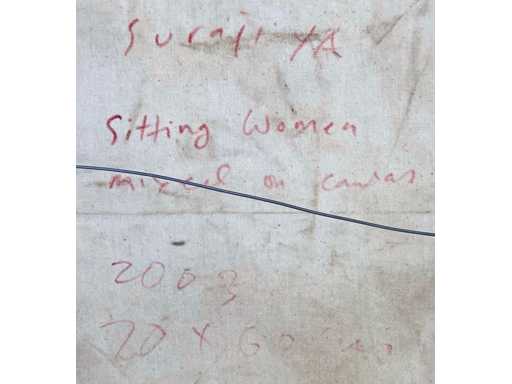 Suraji YA
Sitting Women
mixed on canvas
2003
70 X 60 cm